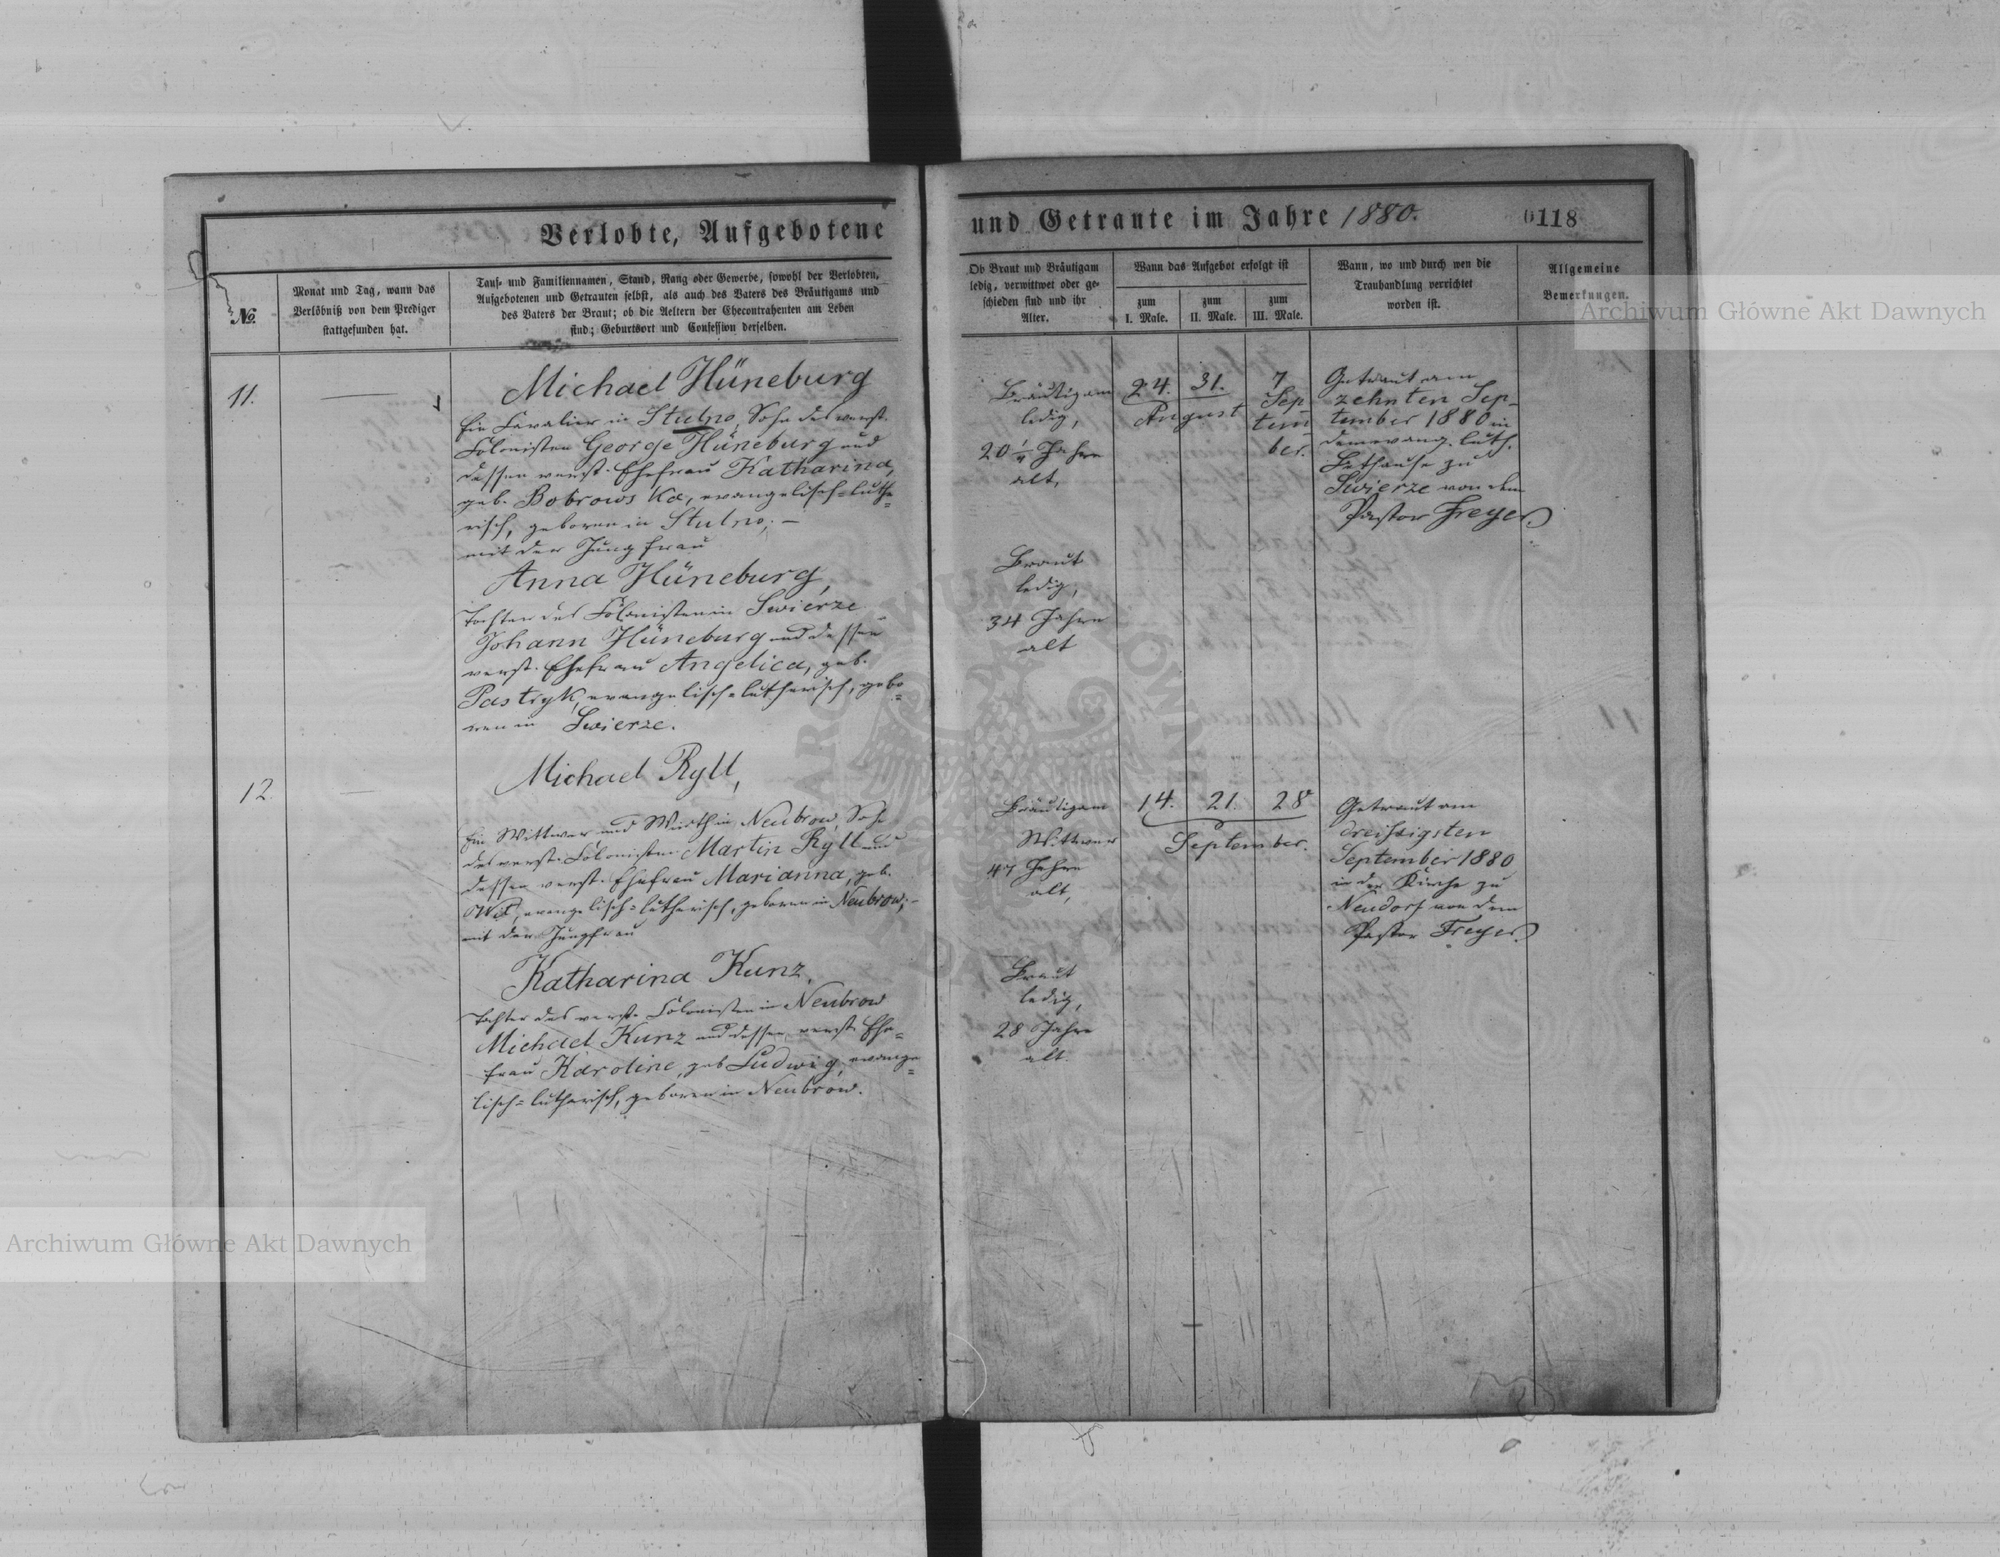 Verlobte, Aufgebotene
und Getraute im Jahre 1880.
0118
№
Monat und Tag, wann das
Verlöbniß von dem Prediger
stattgefunden hat.
Tauf- und Familiennamen, Stand, Rang oder Gewerbe, sowohl der Verlobten,
Aufgebotenen und Getrauten selbst, als auch des Vaters des Bräutigams und
des Vaters der Braut; ob die Aeltern der Ehecontrahenten am Leben
sind; Geburtsort und Confession derselben.
Ob Braut und Bräutigam
ledig, verwittwet oder ge-
schieden sind und ihr
Alter.
Wann das Aufgebot erfolgt ist
zum
I. Male.
zum
II. Male.
zum
III. Male.
Wann, wo und durch wen die
Trauhandlung verrichtet
worden ist.
Allgemeine
Bemerkungen.
11.
Michael Hüneburg
Ein Cavalier in Stulno, Sohn des verst.
Colonisten George Hüneburg und
dessen verst. Ehefrau Katharina,
geb. Bobrowska, evangelisch-luthe-
risch, geboren in Stulno; —
mit der Jungfrau
Anna Hüneburg,
Tochter des Colonisten in Swierze
Johann Hüneburg und dessen
verst. Ehefrau Angelica, geb.
Pastryk, evangelisch-lutherisch, gebo-
ren in Swierze.
Bräutigam
ledig,
20 Jahre
alt,
Braut
ledig,
34 Jahre
alt
24. 31.
August
7
Sep
tem
ber.
Getraut am
zehnten Sep-
tember 1880 in
dem evang. luth.
Bethause zu
Swierze von dem
Pastor Freyer.
12.
Michael Ryll,
Ein Wittwer und Wirth in Neubrow, Sohn
des verst. Colonisten Martin Ryll und
dessen verst. Ehefrau Marianna, geb.
evangelisch-lutherisch, geboren in Neubrow; —
mit der Jungfrau
Katharina Kunz,
Tochter des verst. Colonisten in Neubrow
Michael Kunz und dessen verst. Ehe-
frau Karoline, geb. Ludwig, evange-
lisch-lutherisch, geboren in Neubrow.
Bräutigam
Wittwer
47 Jahre
alt,
Braut
ledig,
28 Jahre
alt.
14. 21. 28
September.
Getraut am
dreißigsten
September 1880
in der Kirche zu
Neudorf von dem
Pastor Freyer.
Archiwum Główne Akt Dawnych
Archiwum Główne Akt Dawnych